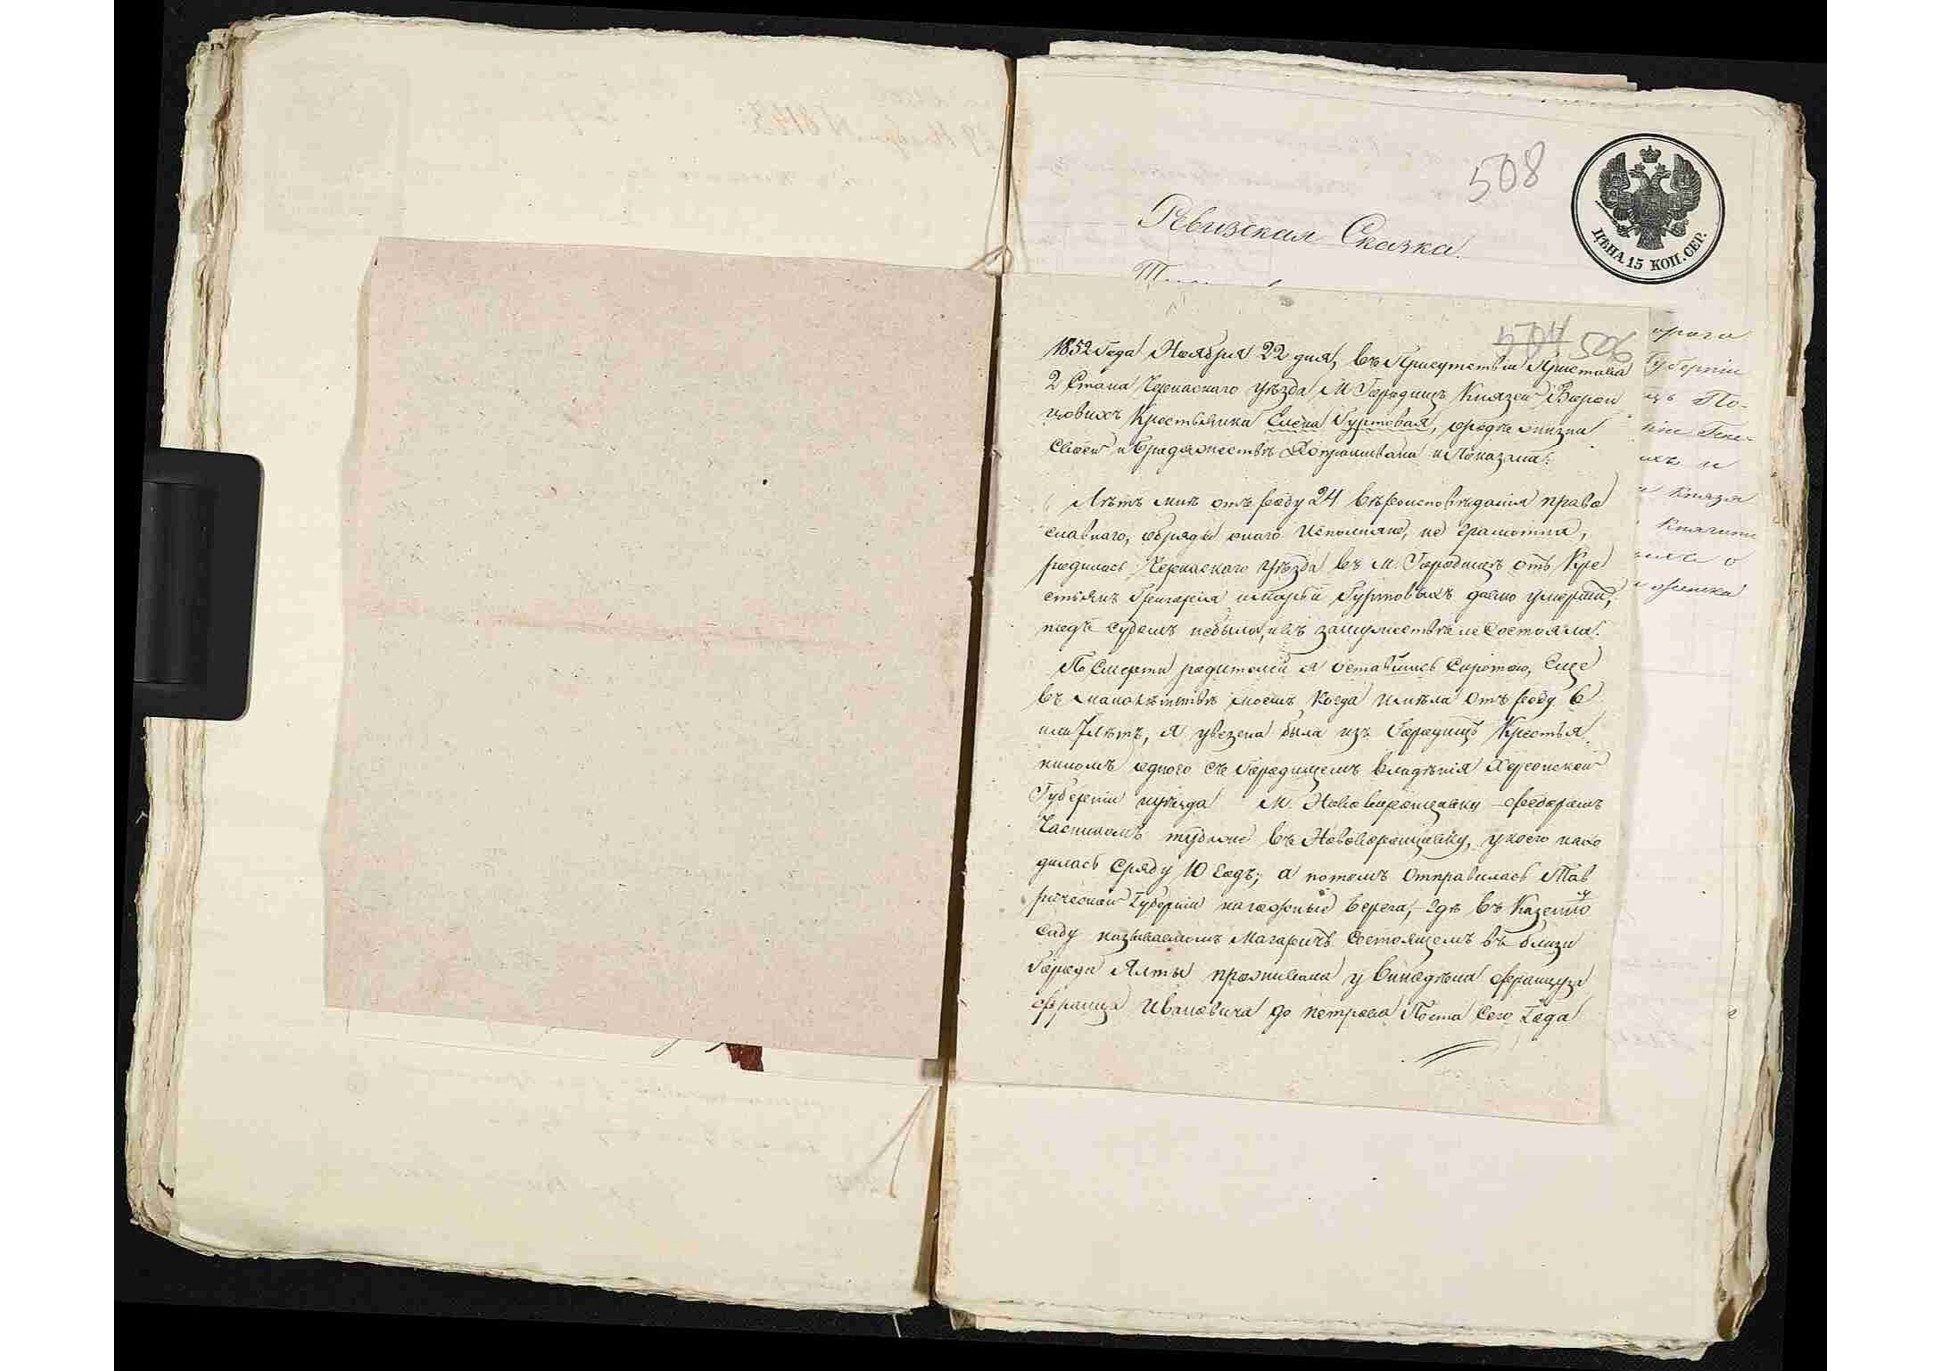 508
ЦѢНА 15 КОП. СЕР.
Ревизская Сказка
504 506
1852 Года Ноября 22 дня, въ Присутствіи Пристава
2 Стана Черкаскаго уѣзда М. Городищъ Князей Ворон
цовыхъ Крестьянка Елена Гуртовая, о родѣ жизни
своей и бродяжествѣ допрашивана и Показала:
Лѣтъ мнѣ отъ роду 24 вѣроисповѣданія право
славнаго, обряды онаго исполняю, не грамотна,
родилась Черкаскаго уѣзда въ М. Городищѣ отъ Кре
стьянъ Григорія и Марьи Гуртовыхъ давно умерши,
подъ судомъ небыла, и въ замужествѣ не Состояла.
По Смерти родителей я оставшись Сиротою, Еще
въ малолѣтствѣ моемъ когда имѣла отъ роду 6
или 7 лѣтъ, я увезена была изъ Городищъ Крестья
ниномъ одного съ Городищемъ владѣнія Херсонской
Губерніи и уѣзда М. Нововоронцовку Федоромъ
въ Нововоронцовку, у коего нахо
дилась Сряду 10 Годъ; а потомъ Отправилась Тав
рической Губерніи на южные берега, гдѣ въ Казенно
му
саду называемомъ Магарачъ Состоящемъ въ близи
Города Ялты проживала у винодѣла француза
Франца Ивановича до петрова Поста Сего Года
Губерніи
Князя
и
о